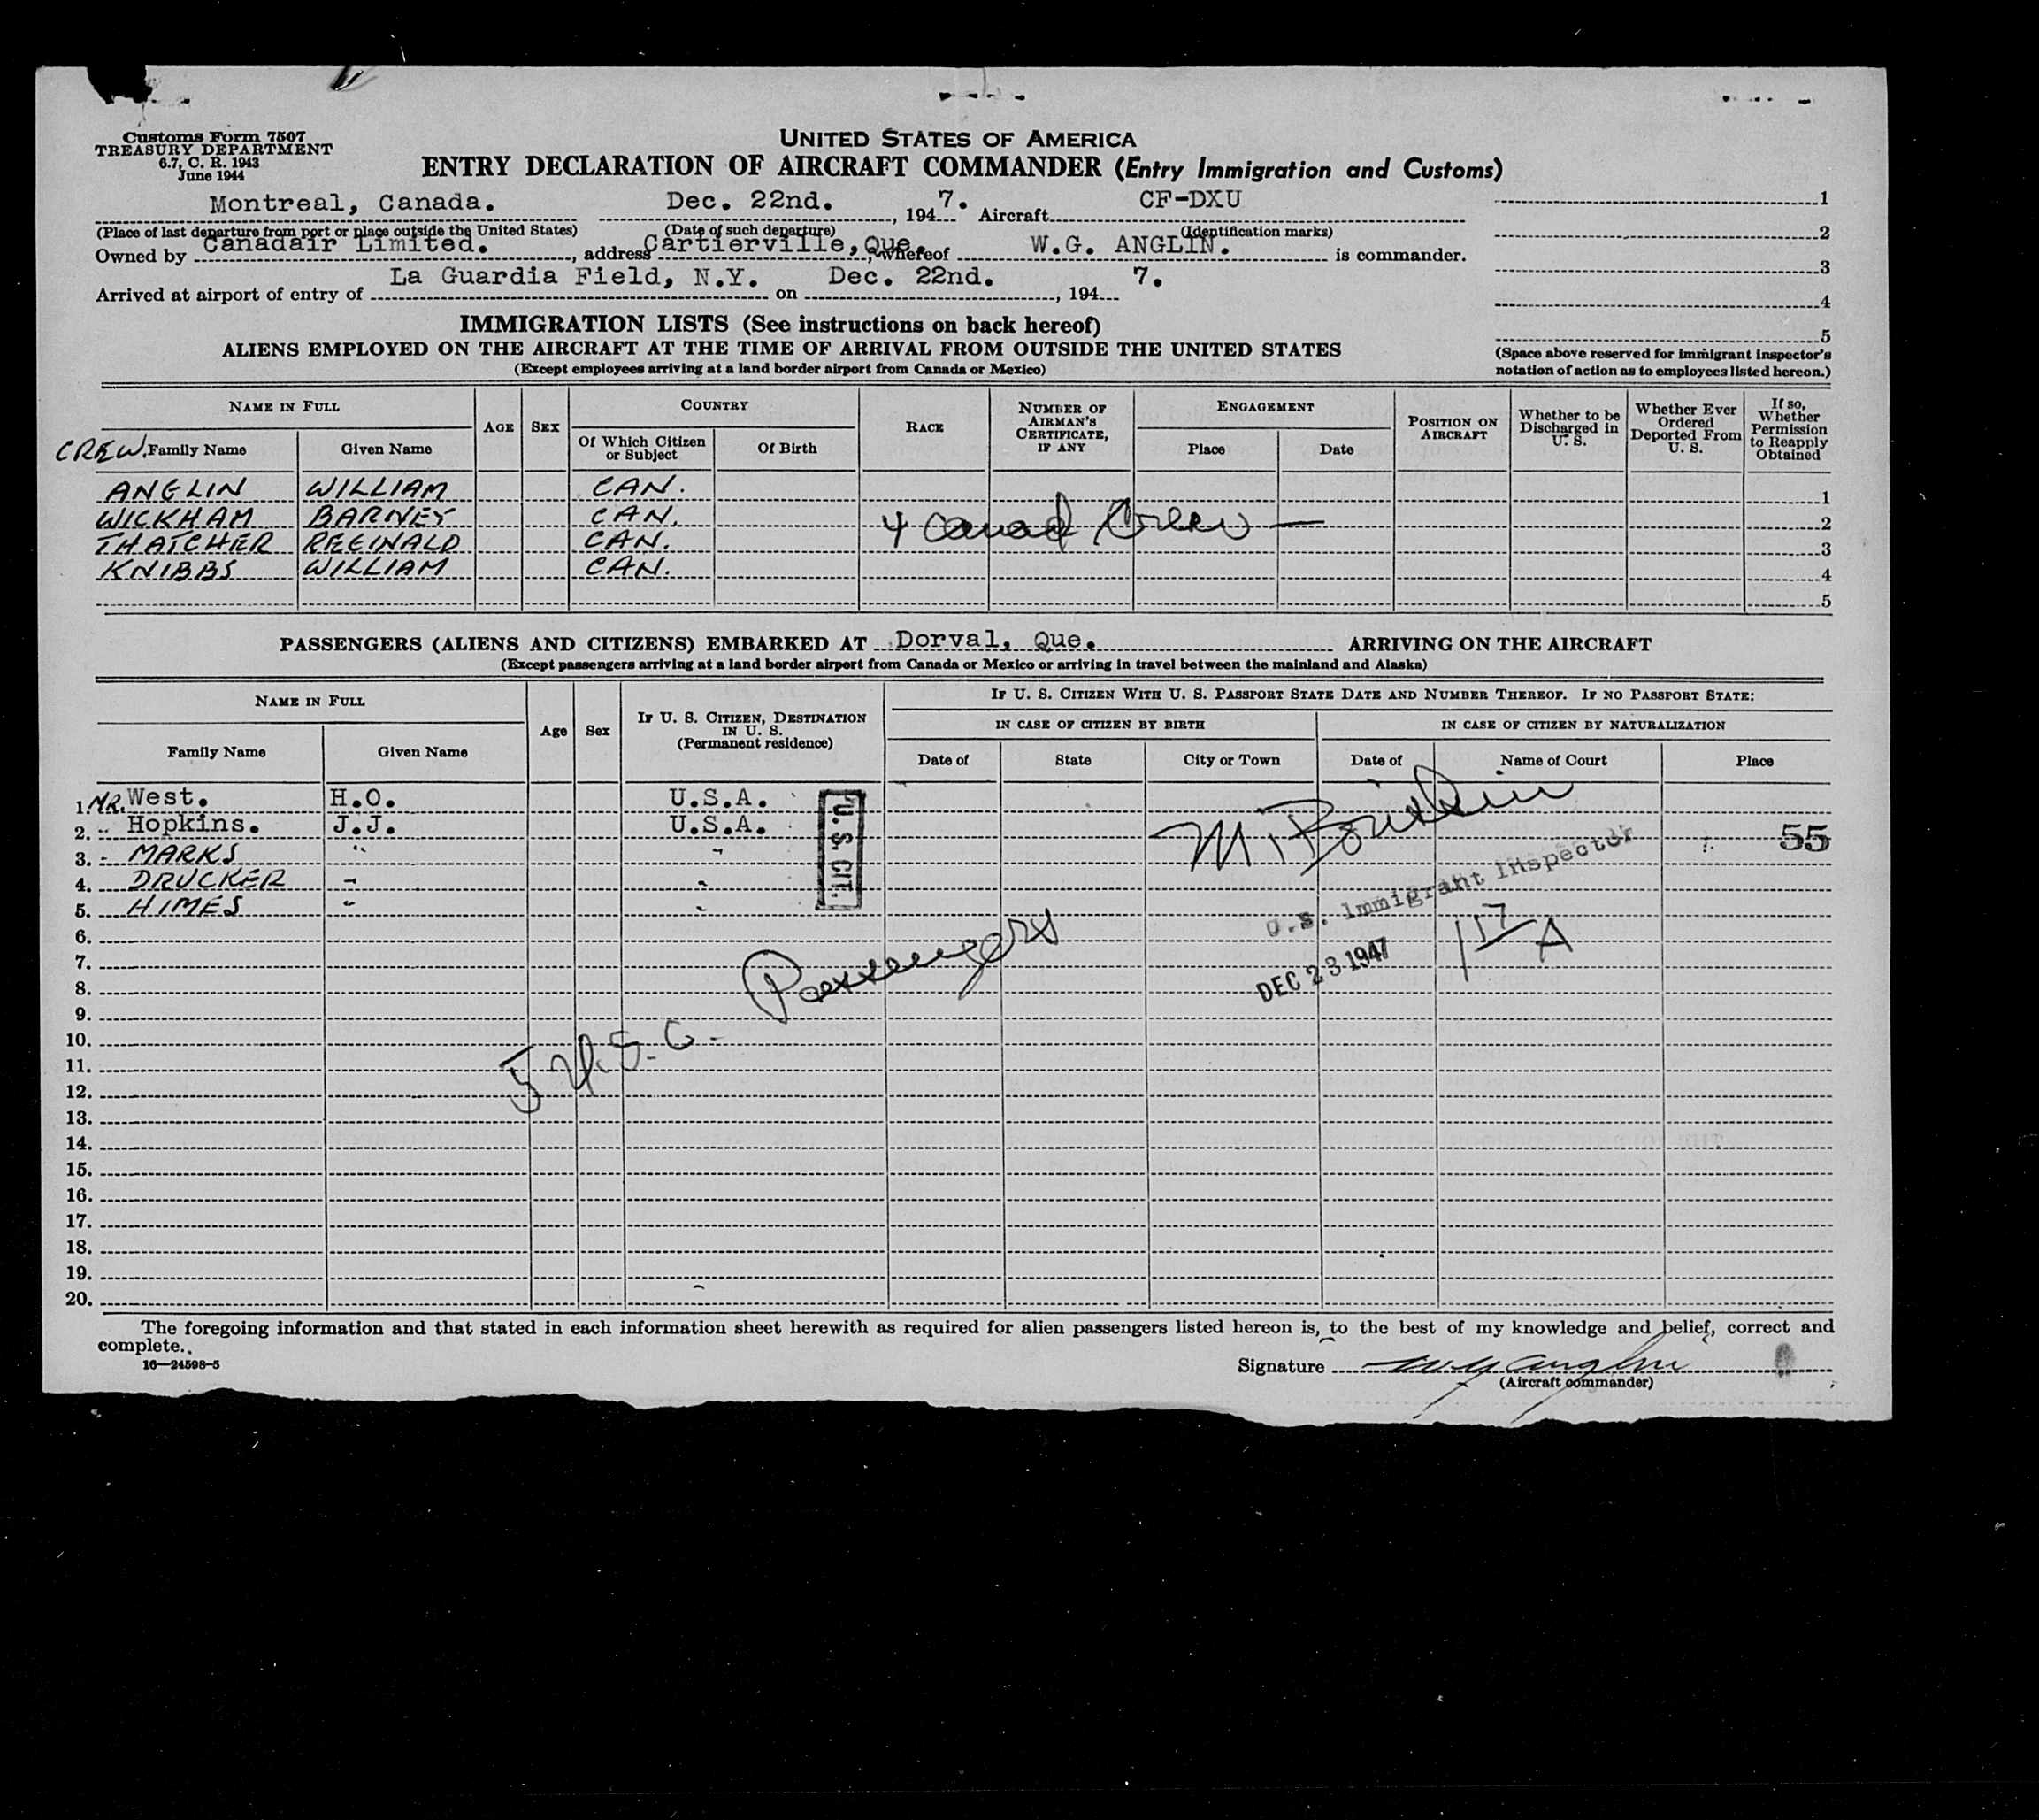 Customs Form 7507
TREASURY DEPARTMENT
6.7, C. R. 1943
June 1944
UNITED STATES OF AMERICA
ENTRY DECLARATION OF AIRCRAFT COMMANDER (Entry Immigration and Customs)
Montreal, Canada. Dec. 22nd. , 194 7. Aircraft CF-DXU
(Place of last departure from port or place outside the United States) (Date of such departure) (Identification marks)
Owned by Canadair Limited. , address Cartierville, Que. , whereof W.G. ANGLIN. is commander.
Arrived at airport of entry of La Guardia Field, N.Y. on Dec. 22nd. , 194 7.
1
2
3
4
5
(Space above reserved for immigrant inspector's
notation of action as to employees listed hereon.)
IMMIGRATION LISTS (See instructions on back hereof)
ALIENS EMPLOYED ON THE AIRCRAFT AT THE TIME OF ARRIVAL FROM OUTSIDE THE UNITED STATES
(Except employees arriving at a land border airport from Canada or Mexico)
NAME IN FULL
CREW. Family Name Given Name
AGE
SEX
COUNTRY
Of Which Citizen or Subject
Of Birth
RACE
NUMBER OF AIRMAN'S CERTIFICATE, IF ANY
ENGAGEMENT
Place Date
POSITION ON AIRCRAFT
Whether to be Discharged in U. S.
Whether Ever Ordered Deported From U. S.
If so, Whether Permission to Reapply Obtained
ANGLIN WILLIAM CAN. 1
WICKHAM BARNEY CAN. 2
THATCHER REGINALD CAN. 3
KNIBBS WILLIAM CAN. 4
5
4 Canad Crew —
PASSENGERS (ALIENS AND CITIZENS) EMBARKED AT Dorval, Que. ARRIVING ON THE AIRCRAFT
(Except passengers arriving at a land border airport from Canada or Mexico or arriving in travel between the mainland and Alaska)
NAME IN FULL
Family Name Given Name
Age
Sex
IF U. S. CITIZEN, DESTINATION IN U. S.
(Permanent residence)
IF U. S. CITIZEN WITH U. S. PASSPORT STATE DATE AND NUMBER THEREOF. IF NO PASSPORT STATE:
IN CASE OF CITIZEN BY BIRTH
IN CASE OF CITIZEN BY NATURALIZATION
Date of State City or Town Date of Name of Court Place
1. MR. West. H.O. U.S.A.
2. " Hopkins. J.J. U.S.A.
3. " MARKS " "
4. DRUCKER " "
5. HIMES " "
U. S. CIT.
55
U.S. Immigrant Inspector
DEC 23 1947
5 U.S.C. Passengers
6.
7.
8.
9.
10.
11.
12.
13.
14.
15.
16.
17.
18.
19.
20.
The foregoing information and that stated in each information sheet herewith as required for alien passengers listed hereon is, to the best of my knowledge and belief, correct and
complete.
16—24598-5
Signature W G Anglin
(Aircraft commander)